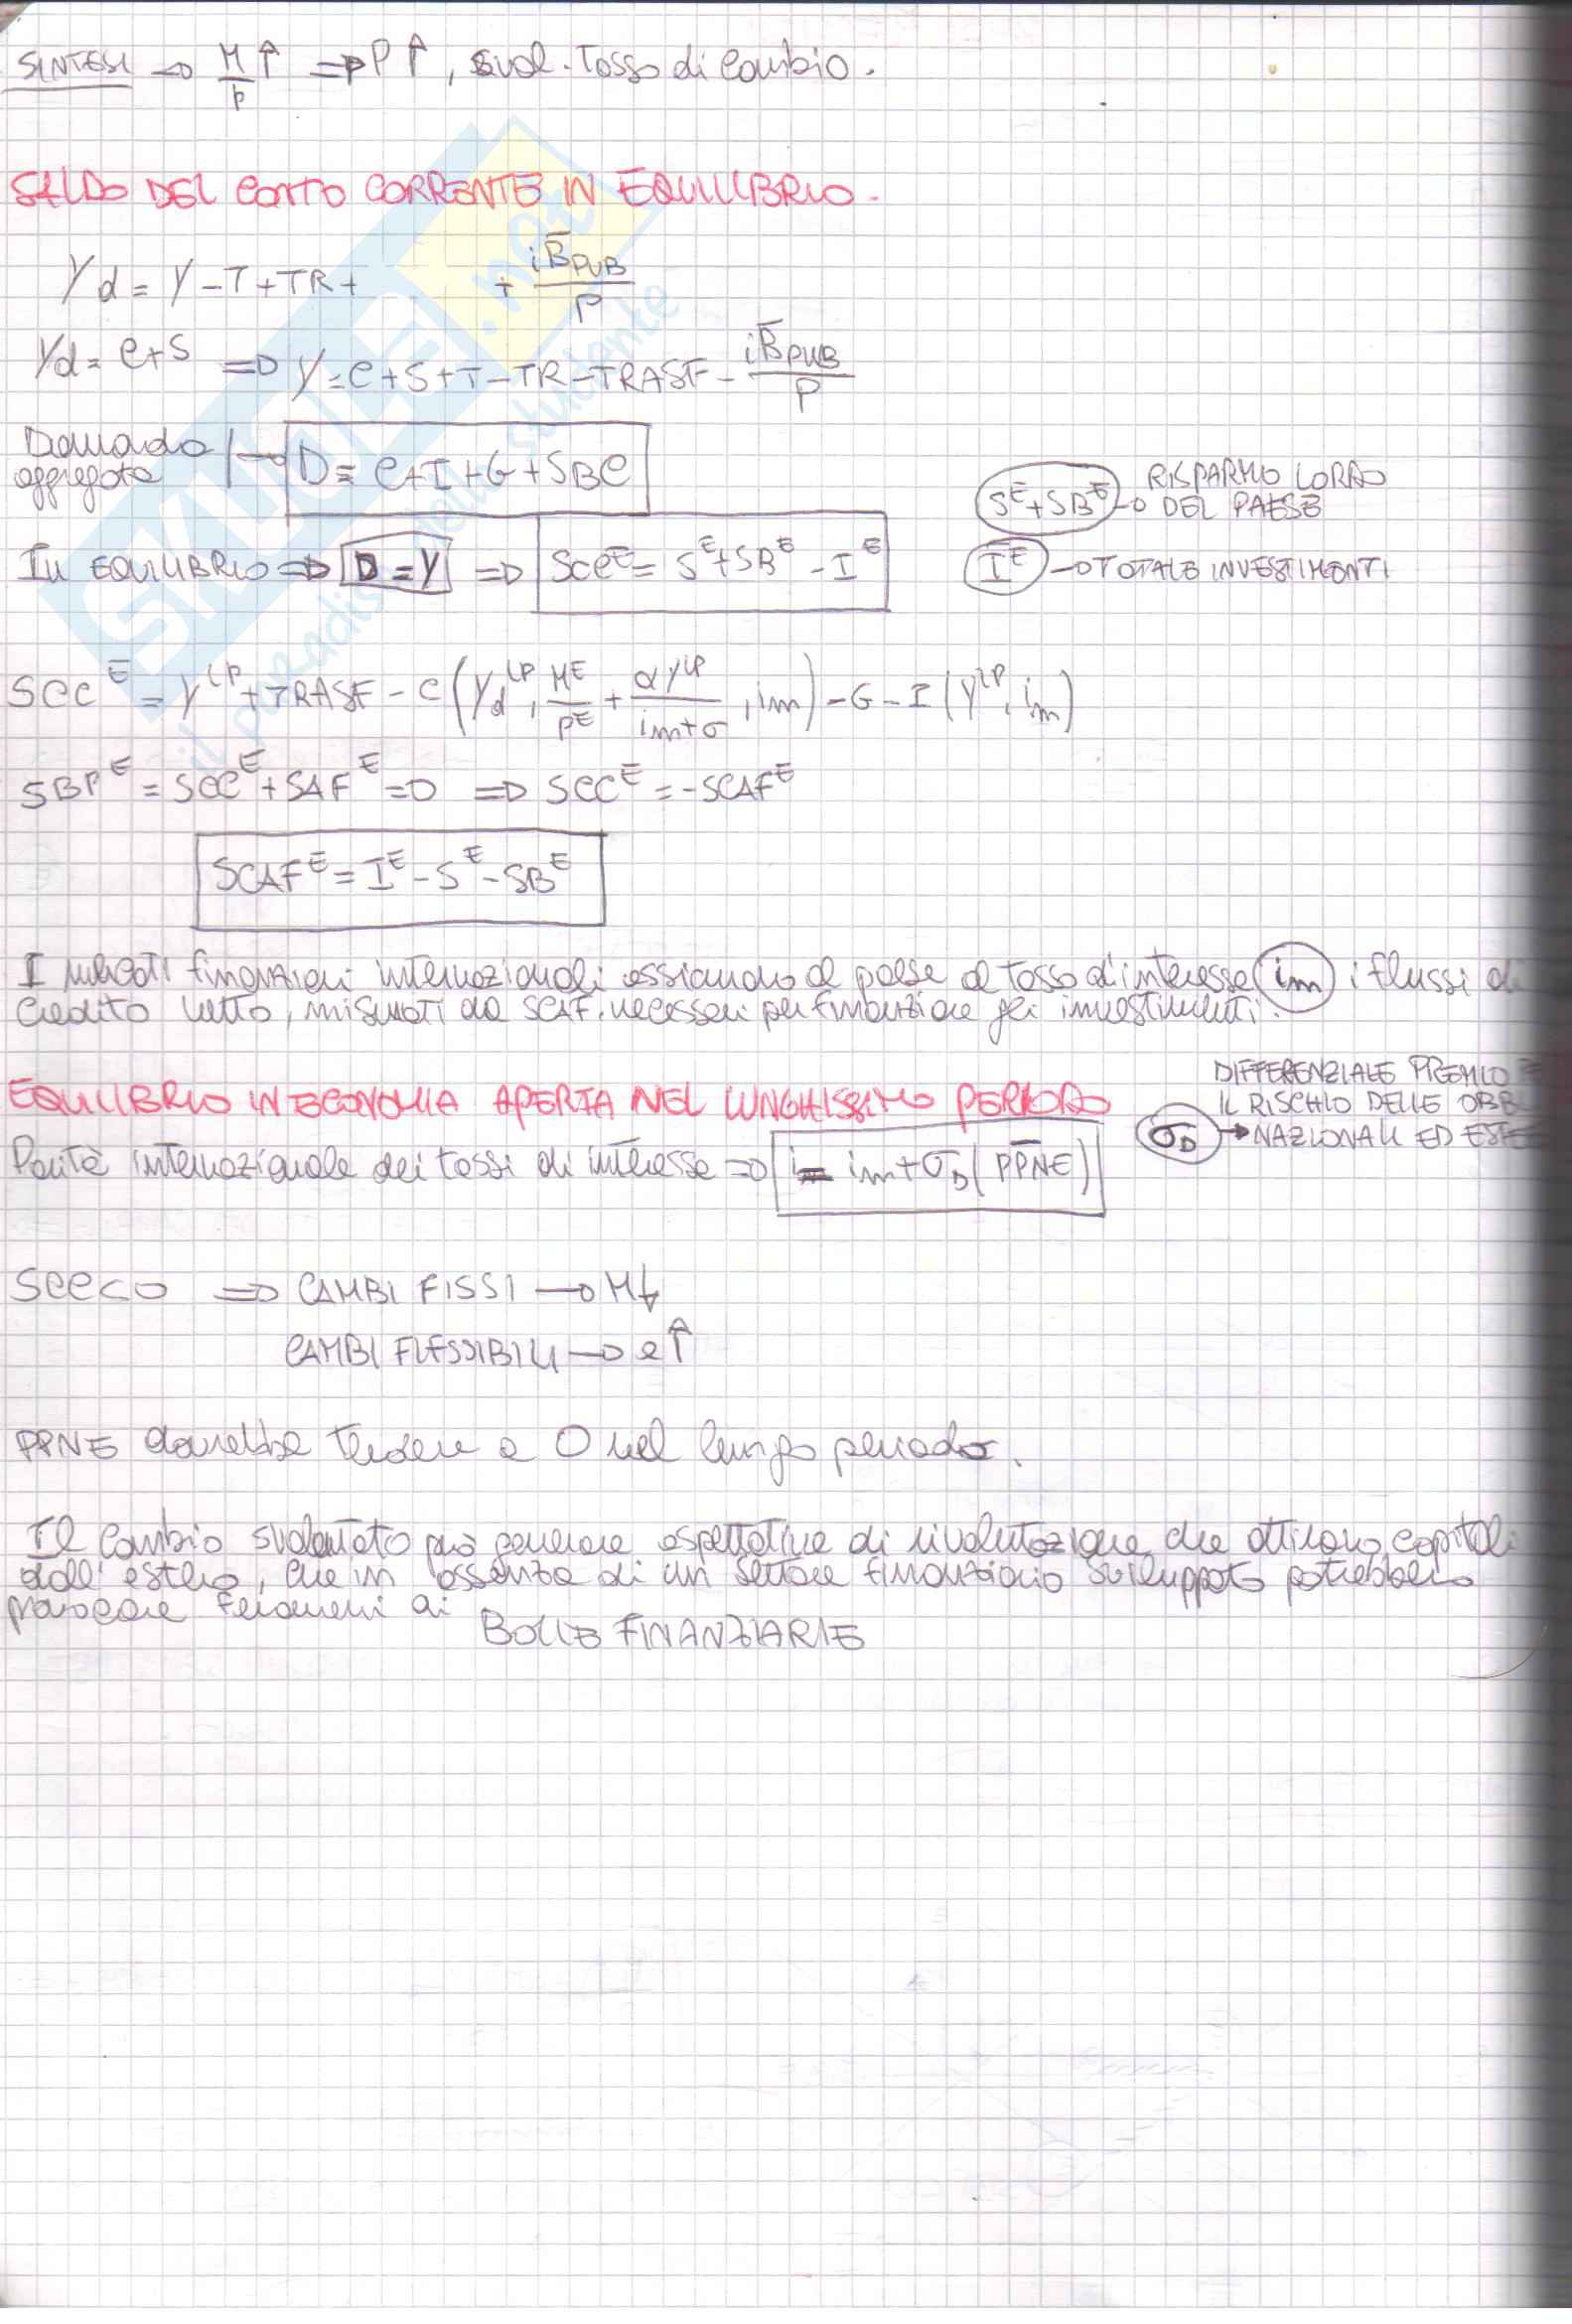 SINTESI → M/P ↑ ⇒ P ↑, sval. Tasso di Cambio.
SALDO DEL CONTO CORRENTE IN EQUILIBRIO.
Yd = Y - T + TR + + iB̄PUB/P
Yd = C + S ⇒ Y = C + S + T - TR - TRASF - iB̄PUB/P
Domanda aggregata → D = C + I + G + SBC
S^E + SB^E → RISPARMIO LORDO DEL PAESE
In EQUILIBRIO ⇒ D = Y ⇒ SCC^E = S^E + SB^E - I^E
I^E → TOTALE INVESTIMENTI
SCC^E = Y^LP + TRASF - C (Yd^LP, M^E/P^E + αY^LP/im+σ, im) - G - I (Y^LP, im)
SBP^E = SCC^E + SAF^E = 0 ⇒ SCC^E = -SCAF^E
SCAF^E = I^E - S^E - SB^E
I mercati finanziari internazionali assicurano al paese al tasso d'interesse im i flussi di
credito netto, misurati da SCAF, necessari per finanziare gli investimenti.
EQUILIBRIO IN ECONOMIA APERTA NEL LUNGHISSIMO PERIODO
DIFFERENZIALE PREMIO
IL RISCHIO DELLE OBB
σD → NAZIONALI ED ESTE
Parità internazionale dei tassi di interesse ⇒ i = im + σD (P̄P̄N̄Ē)
SCC<0 ⇒ CAMBI FISSI → M↓
CAMBI FLESSIBILI → e↑
PPNE dovrebbe tendere a 0 nel lungo periodo.
Il Cambio svalutato può generare aspettative di rivalutazione che attirano capitali
dall'estero, che in assenza di un settore finanziario sviluppato potrebbero
provocare fenomeni di BOLLE FINANZIARIE
SKUOLA.net
il paradiso dello studente